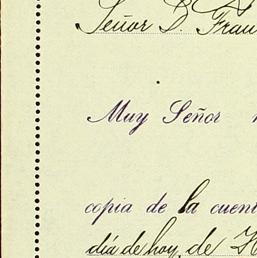 Señor D. Fran
Muy Señor
copia de la cuent
día de hoy, de H